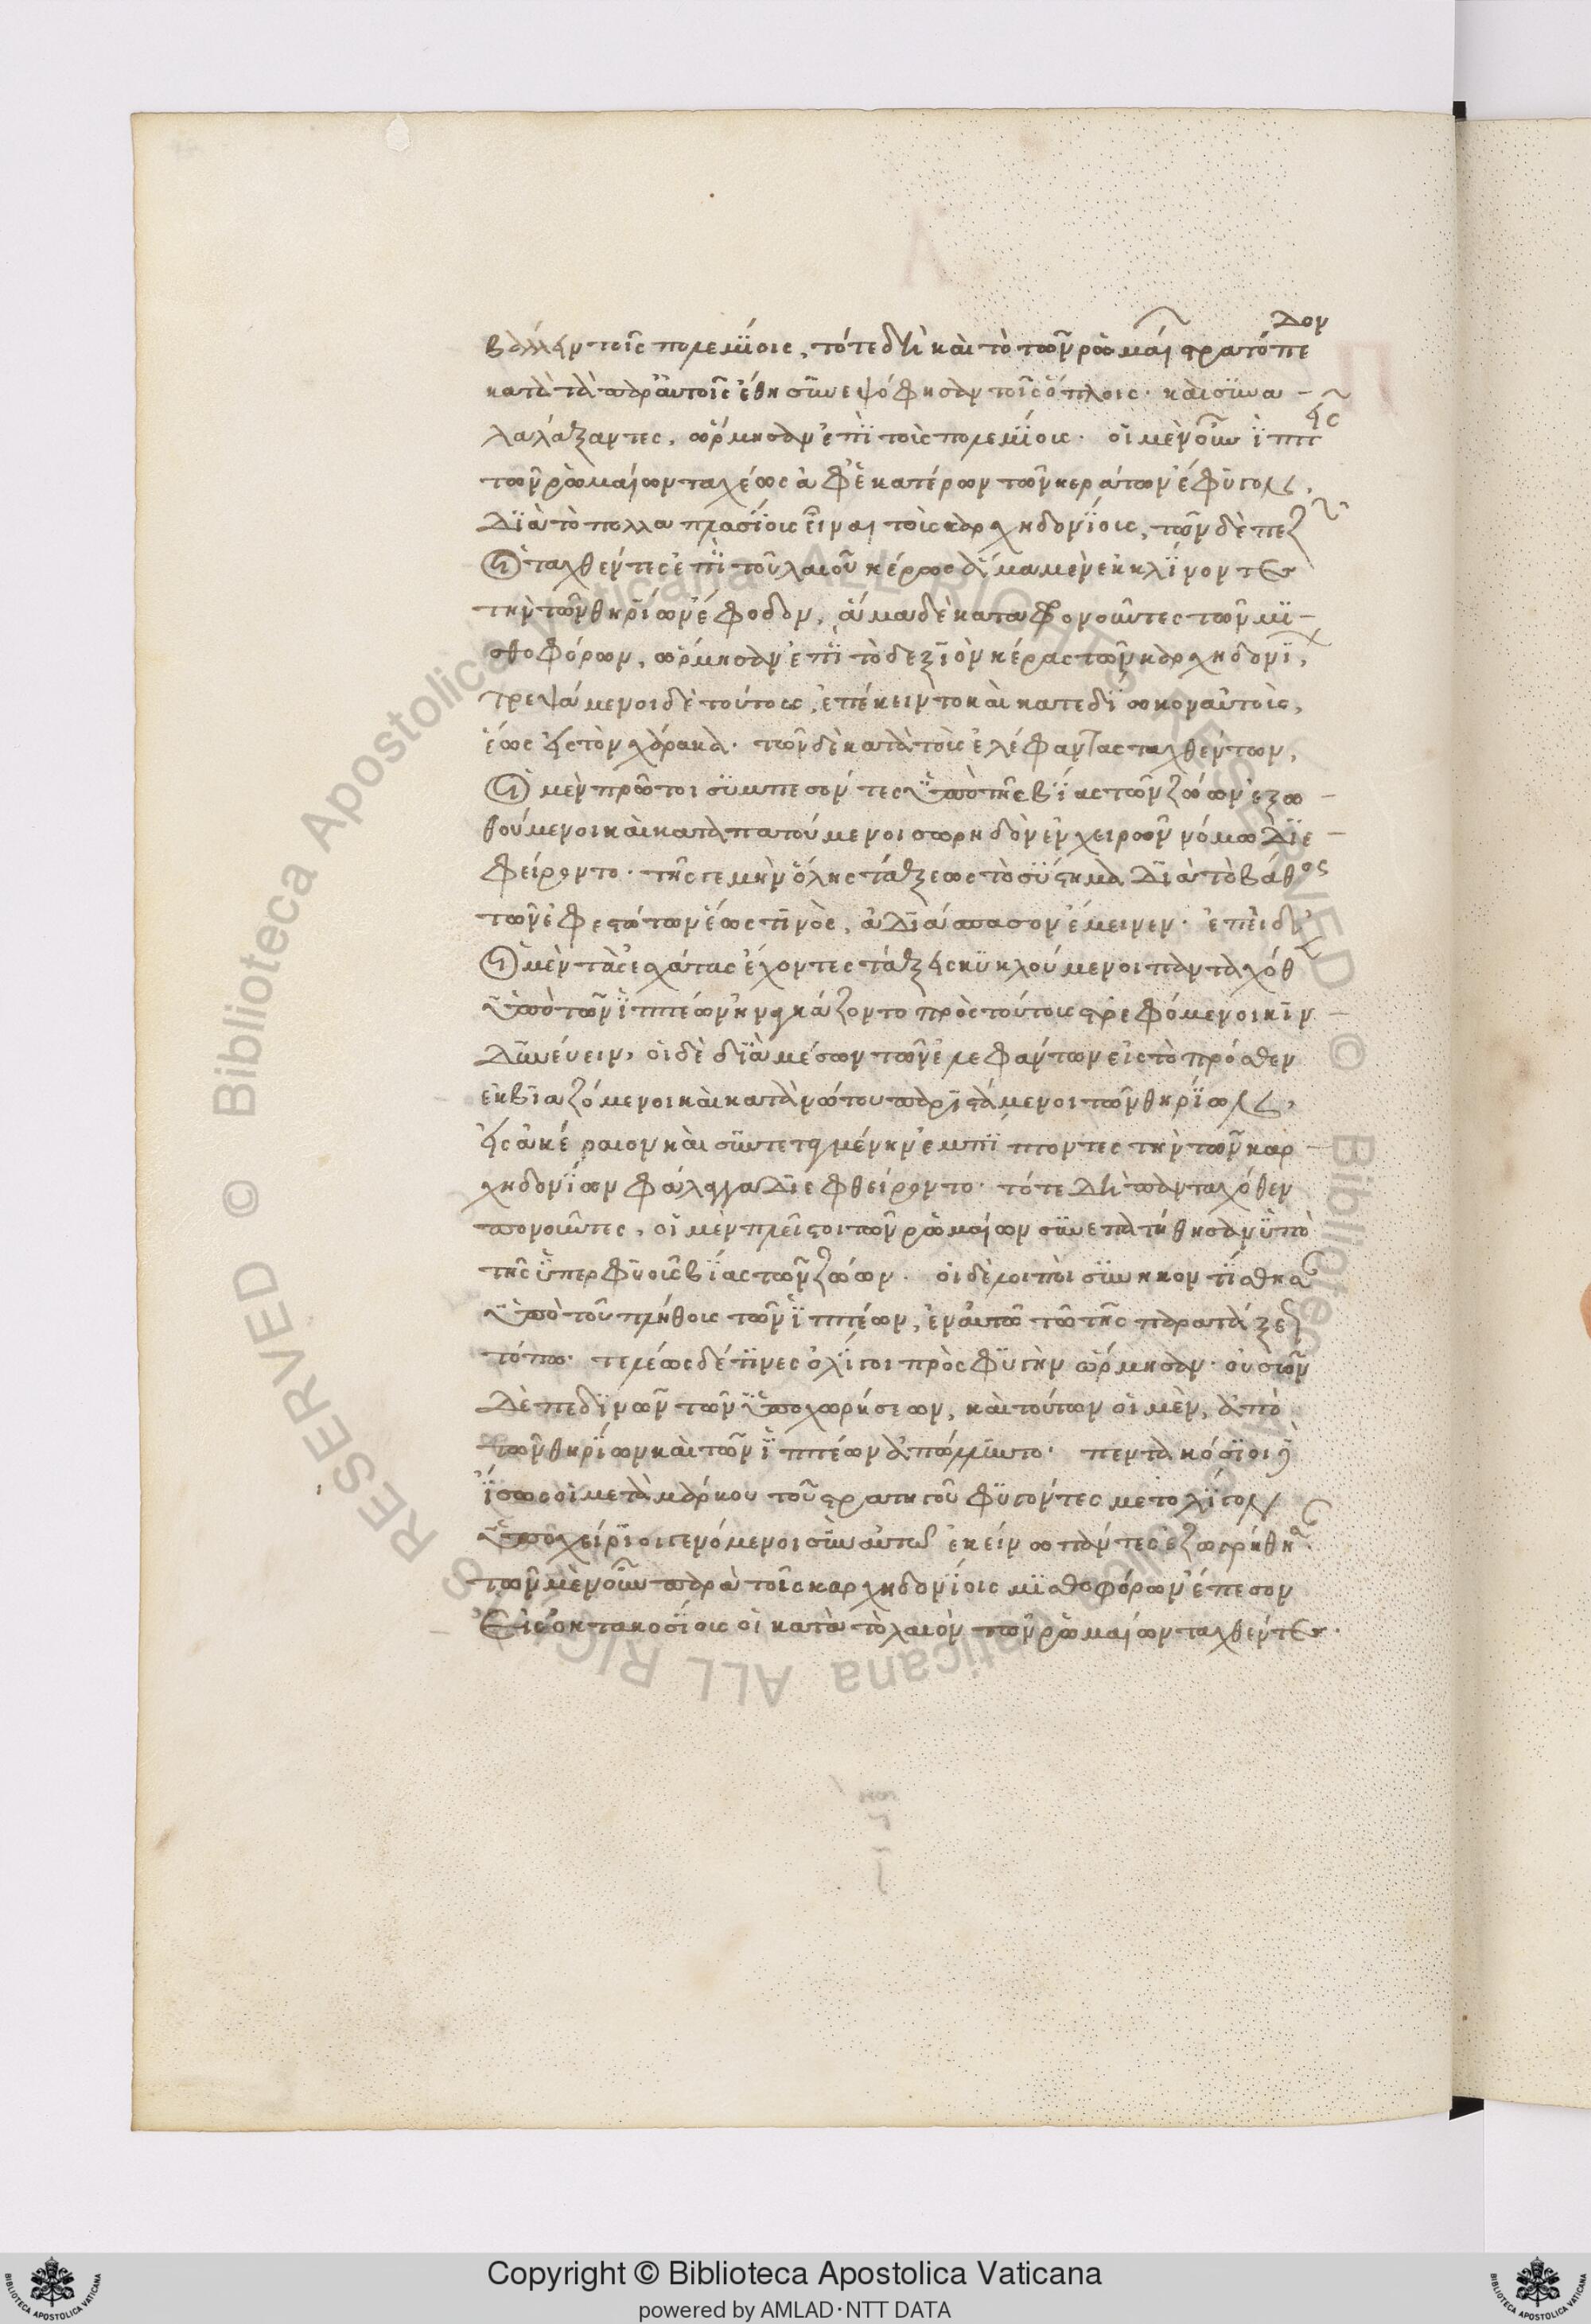 βάλλειν τοῖς πολεμίοις, τότε δὴ καὶ τὸ τῶν ῥωμαί στρατόπεδον
κατὰ τὰ παρ' αὐτοῖς ἔθη συνεψόφησαν τοῖς ὅπλοις· καὶ συνα-
λαλάξαντες, ὥρμησαν ἐπὶ τοὺς πολεμίους. οἱ μὲν οὖν ἱππεῖς
τῶν ῥωμαίων ταχέως ἀφ' ἑκατέρων τῶν κεράτων ἔφυγον,
διὰ τὸ πολλαπλασίους εἶναι τοὺς καρχηδονίους, τῶν δὲ πεζῶν
οἱ ταχθέντες ἐπὶ τοῦ λαιοῦ κέρως ἅμα μὲν ἐκκλίνοντες
τὴν τῶν θηρίων ἔφοδον, ἅμα δὲ καταφρονοῦντες τῶν μι-
σθοφόρων, ὥρμησαν ἐπὶ τὸ δεξιὸν κέρας τῶν καρχηδονί,
τρεψάμενοι δὲ τούτους, ἐπέκειντο καὶ κατεδίωκον αὐτοὺς,
ἕως εἰς τὸν χάρακα. τῶν δὲ κατὰ τοὺς ἐλέφαντας ταχθέντων,
οἱ μὲν πρῶτοι συμπεσόντες ὑπὸ τῆς βίας τῶν ζώων ἐξω-
θούμενοι καὶ καταπατούμενοι σωρηδὸν ἐν χειρῶν νόμω διε-
φείροντο· τῆς γε μὴν ὅλης τάξεως τὸ σύστημα διὰ τὸ βάθος
τῶν ἐφεστώτων ἕως τινὸς, ἀδιάσπαστον ἔμεινεν· ἐπεὶ δὲ
οἱ μὲν τὰς ἐσχάτας ἔχοντες τάξεις κυκλούμενοι πανταχόθεν
ὑπὸ τῶν ἱππέων ἠναγκάζοντο πρὸς τούτους στρεφόμενοι κιν-
δυνεύειν, οἱ δὲ διὰ μέσων τῶν ἐλεφάντων εἰς τὸ πρόσθεν
ἐκβιαζόμενοι καὶ κατὰ νώτου παριστάμενοι τῶν θηρίων,
εἰς ἀκέραιον καὶ συντεταγμένην ἐμπίπτοντες τὴν τῶν καρ-
χηδονίων φάλαγγα διεφθείροντο. τότε δὴ πανταχόθεν
πονοῦντες, οἱ μὲν πλεῖστοι τῶν ῥωμαίων συνεπατήθησαν ὑπὸ
τῆς ὑπερφυοῦς βίας τῶν ζώων. οἱ δὲ λοιποὶ συνηκοντίσθησαν
ὑπὸ τοῦ πλήθους τῶν ἱππέων, ἐν αὐτῶ τῶ τῆς παρατάξεως
τόπω. τελέως δέ τινες ὀλίγοι πρὸς φυγὴν ὥρμησαν. οὐσῶν
δὲ πεδινῶν τῶν ὑποχωρήσεων, καὶ τούτων οἱ μὲν, ἀπὸ
τῶν θηρίων καὶ τῶν ἱππέων ἀπώλλυντο· πεντακόσιοι δ'
ἴσως οἱ μετὰ μάρκου τοῦ στρατηγοῦ φυγόντες μετ' ὀλίγον
ὑποχείριοι γενόμενοι σὺν αὐτῶ ἐκείνω πάντες ἐζωγρήθησαν.
τῶν μὲν οὖν παρὰ τοῖς καρχηδονίοις μισθοφόρων ἔπεσον
εἰς ὀκτακοσίους οἱ κατὰ τὸ λαιὸν τῶν ῥωμαίων ταχθέντες.
Copyright © Biblioteca Apostolica Vaticana
powered by AMLAD·NTT DATA